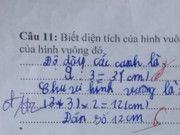 Câu 11: Biết diện tích của hình vuô
của hình vuông đó.
Độ dài các cạnh là
9 : 3 = 3 (cm)
Chu vi hình vuông là
(3 + 3) × 2 = 12 (cm)
Đáp số 12 cm